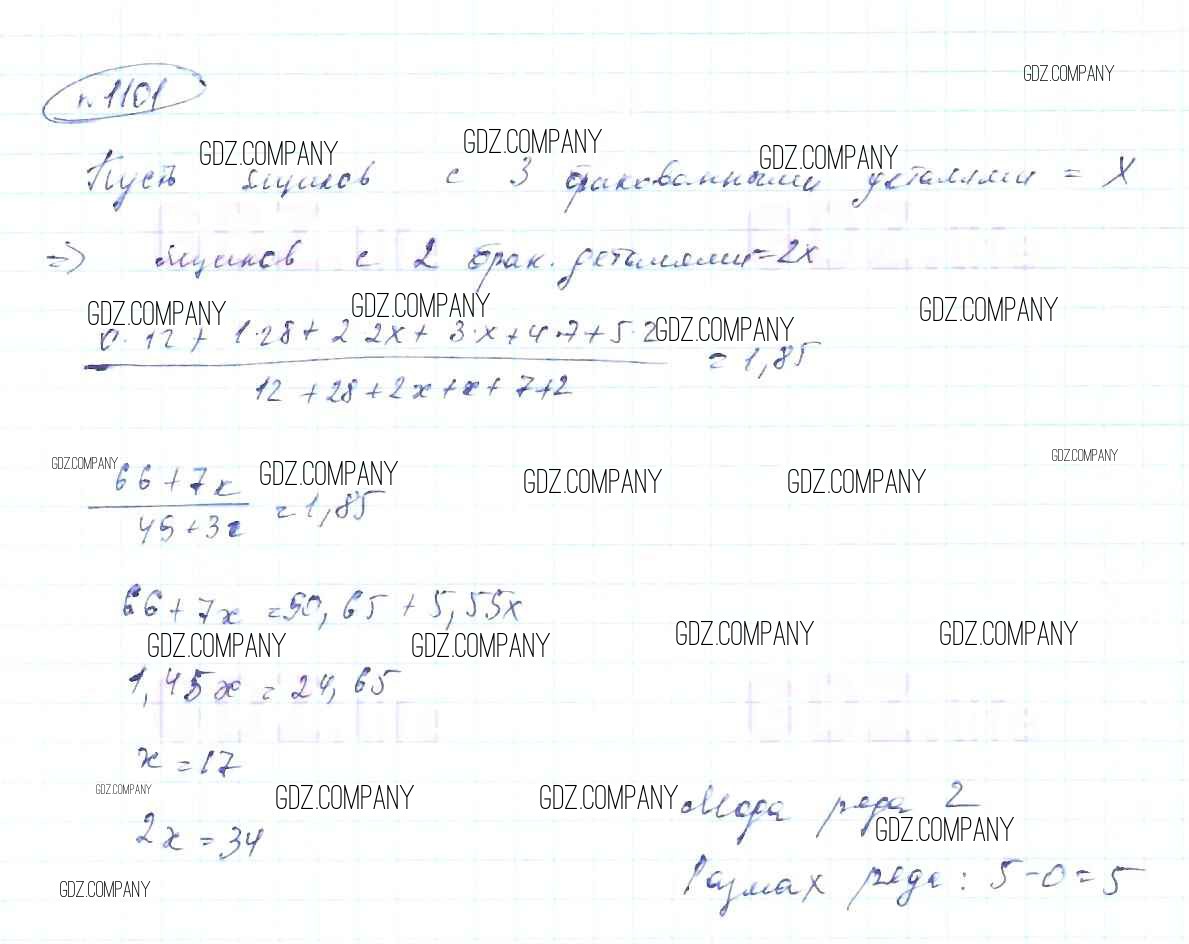 п. 1101
GDZ.COMPANY
GDZ.COMPANY GDZ.COMPANY GDZ.COMPANY
Пусть ящиков с 3 бракованными деталями = x
=> ящиков с 2 брак. деталями = 2x
GDZ.COMPANY GDZ.COMPANY GDZ.COMPANY GDZ.COMPANY
0·12 + 1·28 + 2·2x + 3·x + 4·7 + 5·2
12 + 28 + 2x + x + 7+2
= 1,85
GDZ.COMPANY GDZ.COMPANY GDZ.COMPANY GDZ.COMPANY GDZ.COMPANY
66 + 7x
49 + 3x
= 1,85
66 + 7x = 90,65 + 5,55x
GDZ.COMPANY GDZ.COMPANY GDZ.COMPANY GDZ.COMPANY
1,45x = 24,65
x = 17
GDZ.COMPANY GDZ.COMPANY GDZ.COMPANY
2x = 34
Мода ряда 2
GDZ.COMPANY
Размах ряда: 5-0=5
GDZ.COMPANY